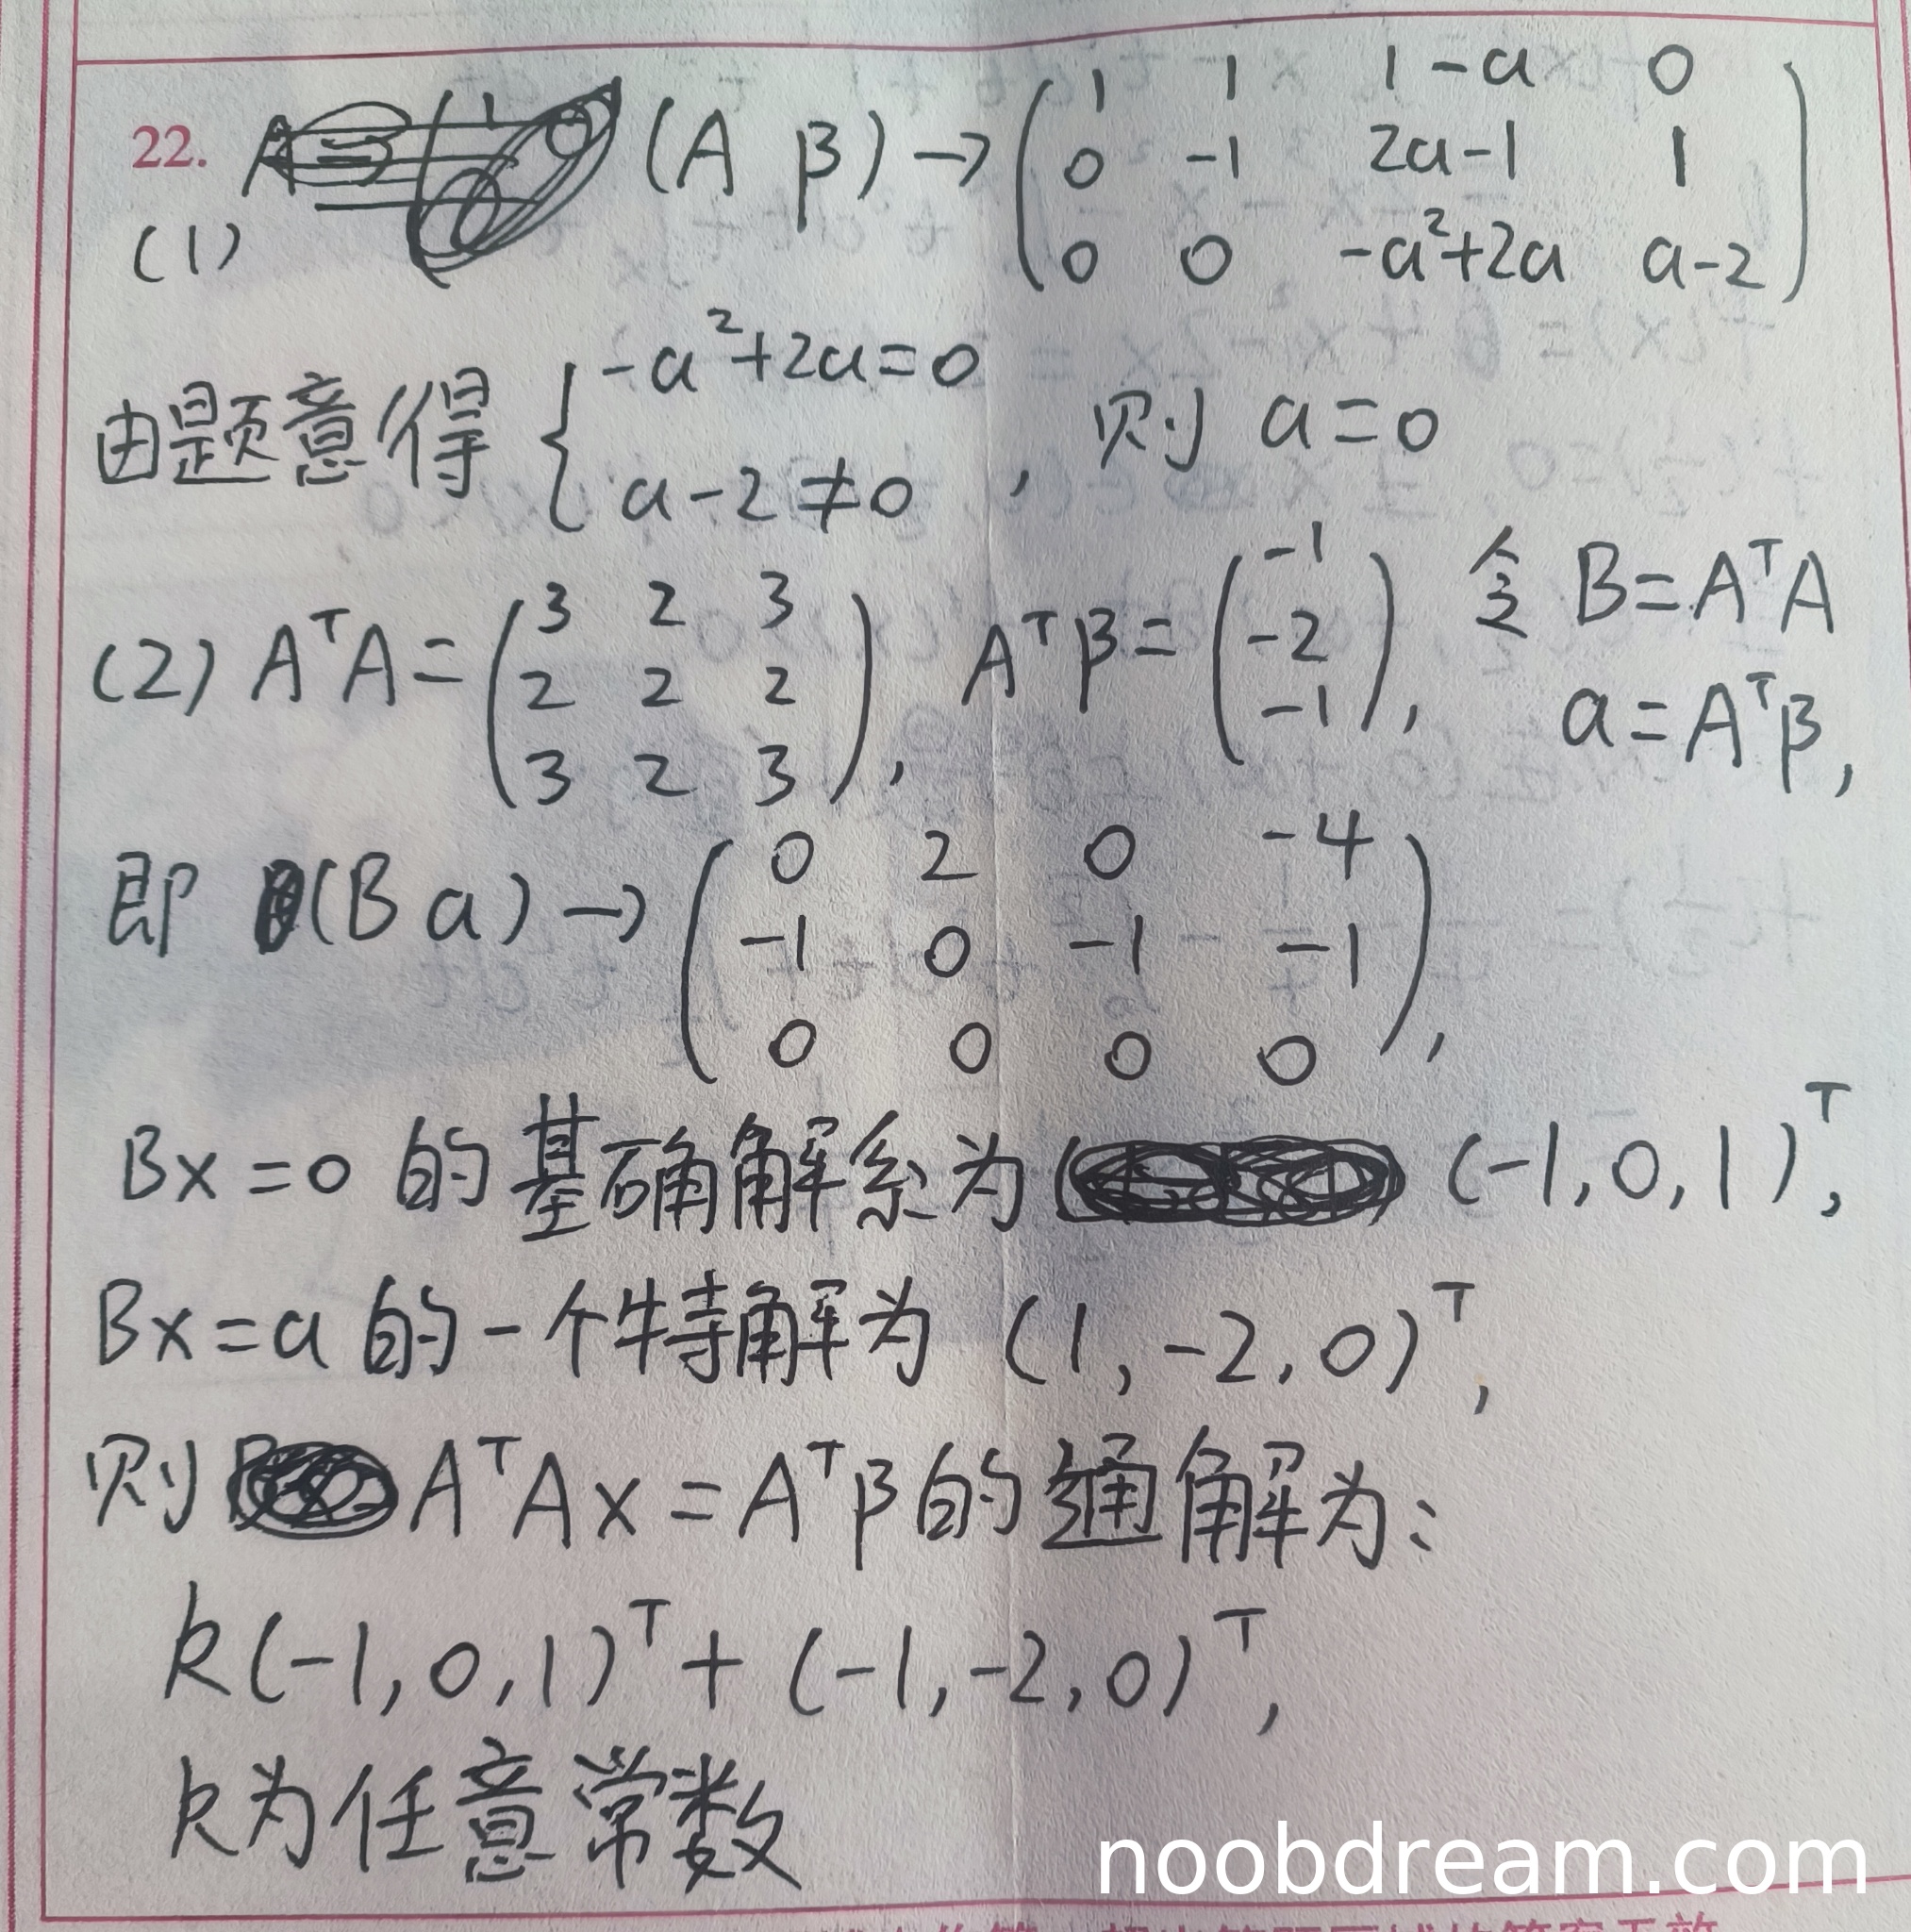 22. (A β) → ( 1 1 1-a 0
0 -1 2a-1 1
(1) 0 0 -a²+2a a-2 )
由题意得 { -a²+2a=0
a-2≠0 , 则 a=0
(2) AᵀA = ( 3 2 3
2 2 2
3 2 3 ), Aᵀβ = ( -1
-2
-1 ), 令 B=AᵀA
a=Aᵀβ,
即 (B a) → ( 0 2 0 -4
-1 0 -1 -1
0 0 0 0 ),
Bx=0 的基确解系为 (-1,0,1)ᵀ,
Bx=a 的一个特解为 (1,-2,0)ᵀ,
则 AᵀAx=Aᵀβ的通解为:
k(-1,0,1)ᵀ+(-1,-2,0)ᵀ,
k为任意常数
noobdream.com